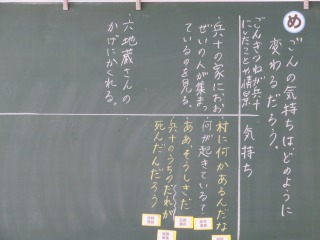 め
ごんの気持ちは、どのように
変わるだろう。
ごんぎつねが兵十
にしたことや情景
気持ち
・兵十の家におお
ぜいの人が集まっ
ているのを見る。
村に何かあるんだな
何が起きている？
ああ、そうしきだ
兵十のうちのだれが
死んだんだろう
・六地蔵さんの
かげにかくれる。